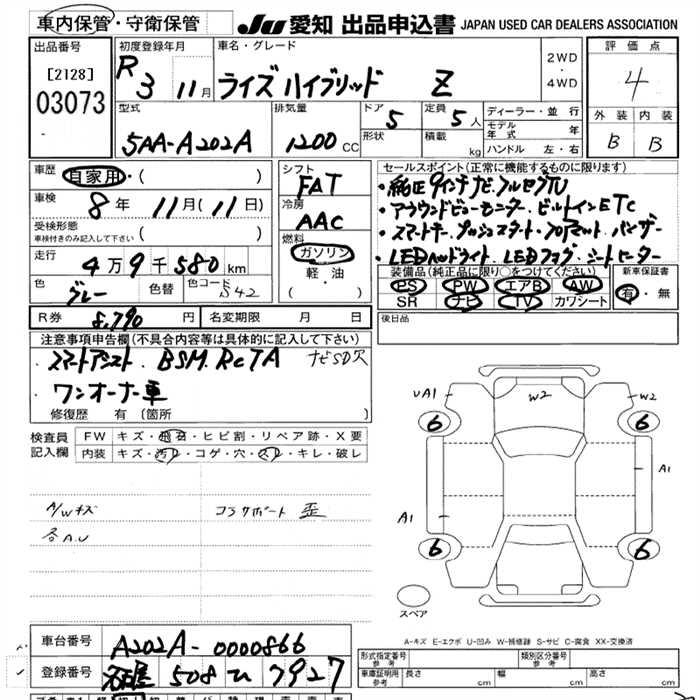 車内保管・守衛保管
JU 愛知 出品申込書 JAPAN USED CAR DEALERS ASSOCIATION
出品番号
[2128]
03073
初度登録年月
R3 11月
車名・グレード
ライズ ハイブリッド Z
2WD
・
4WD
評価点
4
外装 内装
B B
型式
5AA-A202A
排気量
1200 CC
ドア
5
形状
定員
5人
積載
kg
ディーラー・並行
モデル年式 年
ハンドル 左・右
車歴
自家用・( )
車検
8年 11月(11日)
受検形態
車検付きのみ記入して下さい ( )
走行
4万9千580km
色
グレー
色替
色コード
S42
シフト
FAT
冷房
AAC
燃料
ガソリン
軽・油
( )
セールスポイント(正常に機能するものに限ります)
・純正9インチナビ、フルセグTV
・アラウンドビューモニター、ビルトインETC
・スマートキー、プッシュスタート・フロアマット、バイザー
・LEDヘッドライト、LEDフォグ、シートヒーター
装備品(純正品に限り○をつけてください)
PS PW エアB AW
SR ナビ TV カワシート
新車保証書
有・無
R券 8,790円
名変期限 月 日
後日品
注意事項申告欄(不具合内容等は具体的に記入して下さい)
・スマートアシスト、BSM、RcTA ナビSD欠
・ワンオーナー車
修復歴 有 (箇所 )
検査員記入欄
FW キズ・飛石・ヒビ割・リペア跡・X要
内装 キズ・汚レ・コゲ・穴・スレ・キレ・破レ
A/Wキズ コアサポート歪
各A.U
UA1 W2 W2
6 6
A1 A1
6 6
スペア
A-キズ E-エクボ U-凹み W-補修跡 S-サビ C-腐食 XX-交換済
車台番号
A202A-0000866
登録番号
508 7927
形式指定番号
参考
類別区分番号
参考
車庫証明用
参考
長さ cm 幅 cm 高さ cm